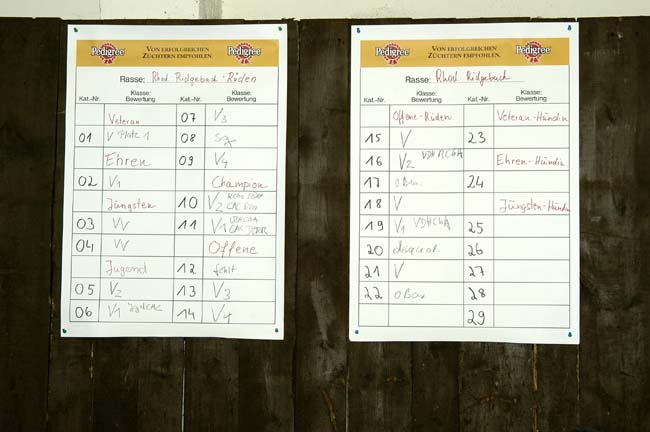 Pedigree VON ERFOLGREICHEN ZÜCHTERN EMPFOHLEN. Pedigree
Rasse: Rhod. Ridgeback - Rüden
Kat.-Nr. Klasse: Bewertung Kat.-Nr. Klasse: Bewertung
Veteran 07 V3
01 V Platz 1 08 Sg
Ehren 09 V4
02 V1 Champion
Jüngsten 10 V2
03 VV 11 V1
04 VV Offene
Jugend 12 fehlt
05 V2 13 V3
06 V1 14 V4
Pedigree VON ERFOLGREICHEN ZÜCHTERN EMPFOHLEN. Pedigree
Rasse: Rhod. Ridgeback
Kat.-Nr. Klasse: Bewertung Kat.-Nr. Klasse: Bewertung
Offene-Rüden Veteran-Hündin
15 V 23
16 V2 Ehren-Hündin
17 24
18 V Jüngsten-Hündin
19 V1 25
20 disqual. 26
21 V 27
22 28
29